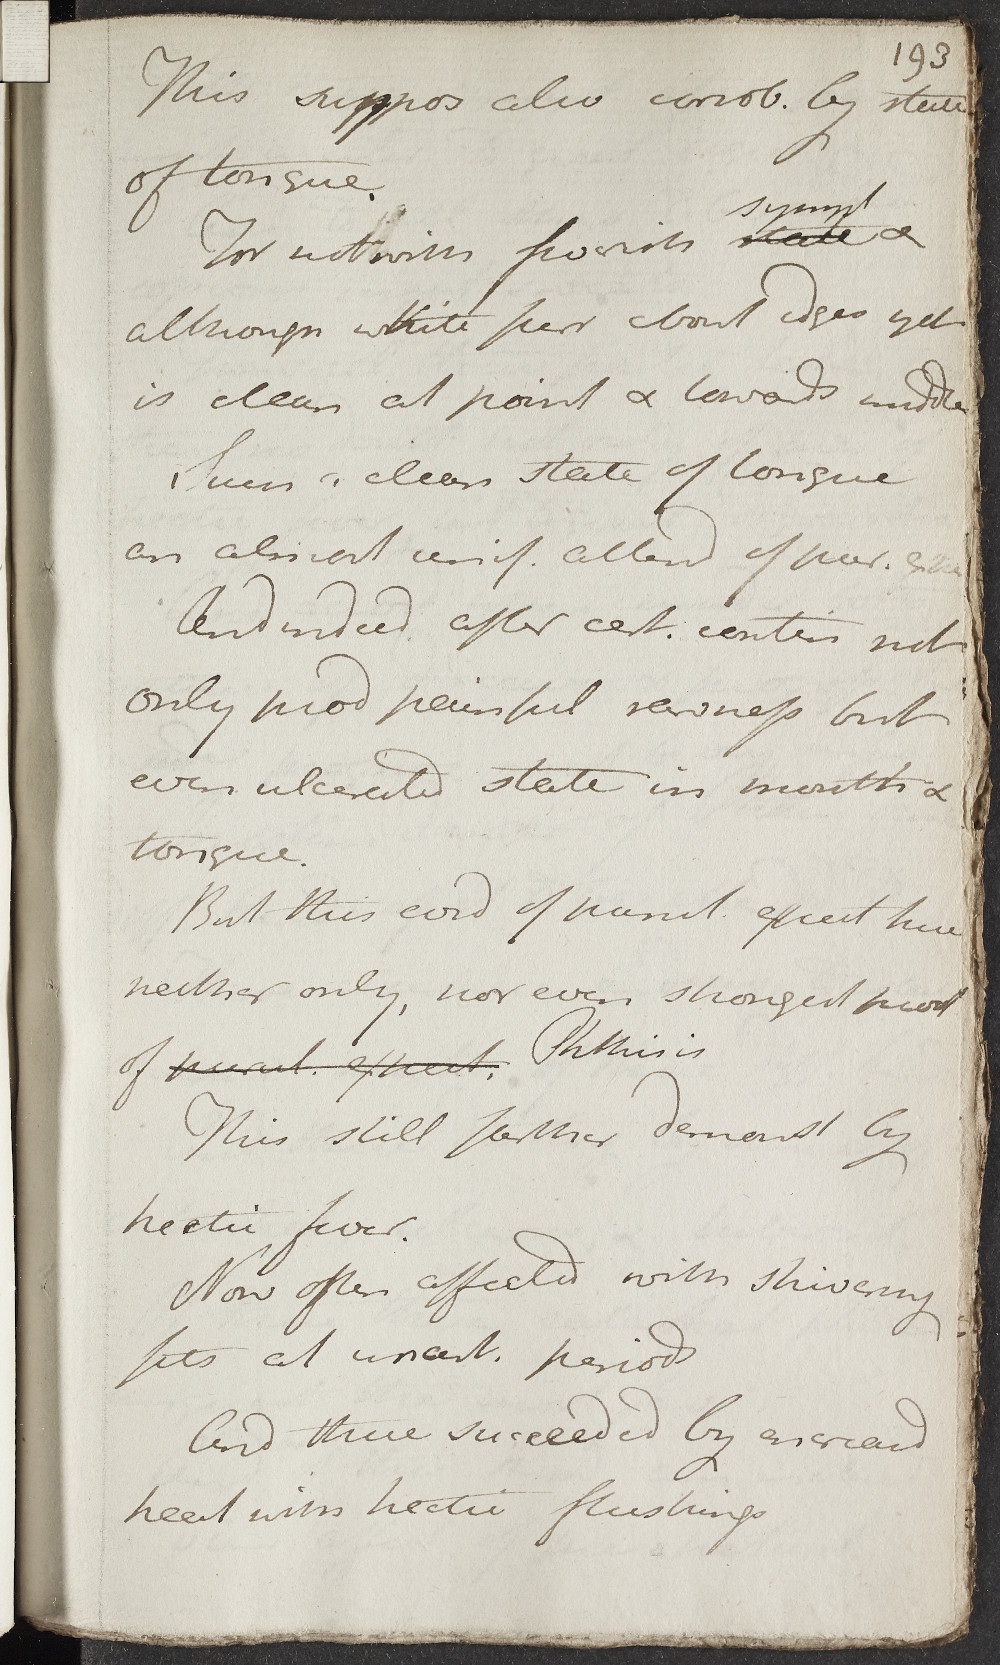 193
This suppos also corrob. by state
of tongue.
For notwith feverish state sympt &
although white furr about edges yet
is clean at point & towards middle
Such a clean state of tongue
an almost unif. attend of pur.
And indeed after cert. contin not
only prod painful rawness but
even ulcerated state in mouth &
tongue.
But this evid of purul. expect here
neither only, nor even strongest proof
of purul. expect. Phthisis
This still farther demonst by
hectic fever.
Now often affected with shivering
fits at uncert. periods
And these succeeded by increasd
heat with hectic flushings